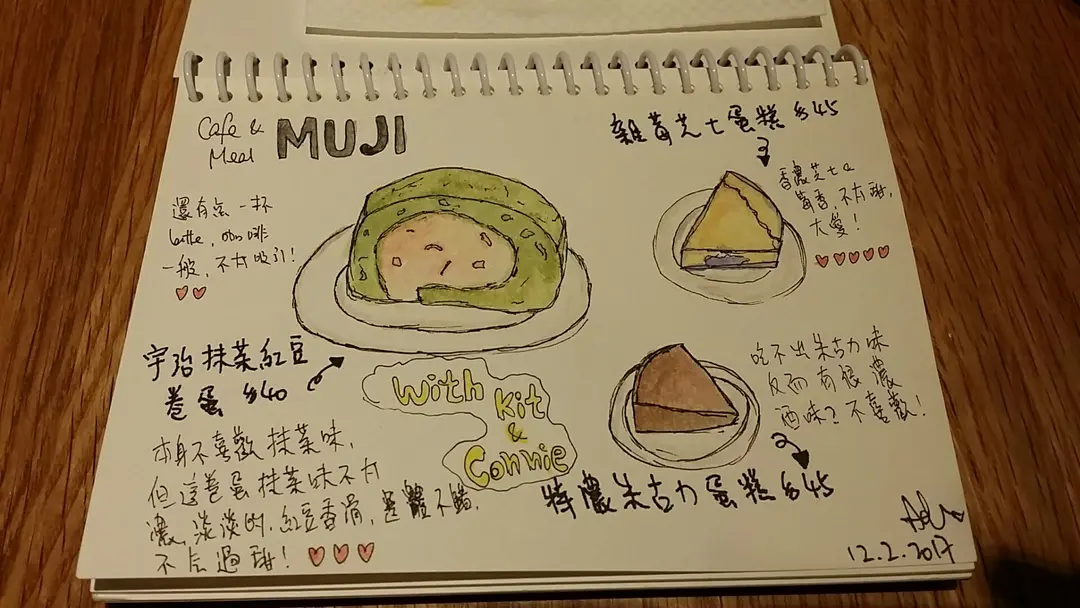 Cafe &
Meal MUJI
還有点一杯
latte, 咖啡
一般, 不太吸引!
宇治抹茶紅豆
卷蛋 $40
本身不喜歡抹茶味,
但這卷蛋抹茶味不太
濃, 淡淡的, 紅豆香滑, 整體不錯,
不会過甜!
With
Kit
&
Connie
雜莓芝士蛋糕 $45
香濃芝士& 
莓香, 不太甜,
大愛!
吃不出朱古力味
反而有很濃
酒味? 不喜歡!
特濃朱古力蛋糕 $45
12.2.2017